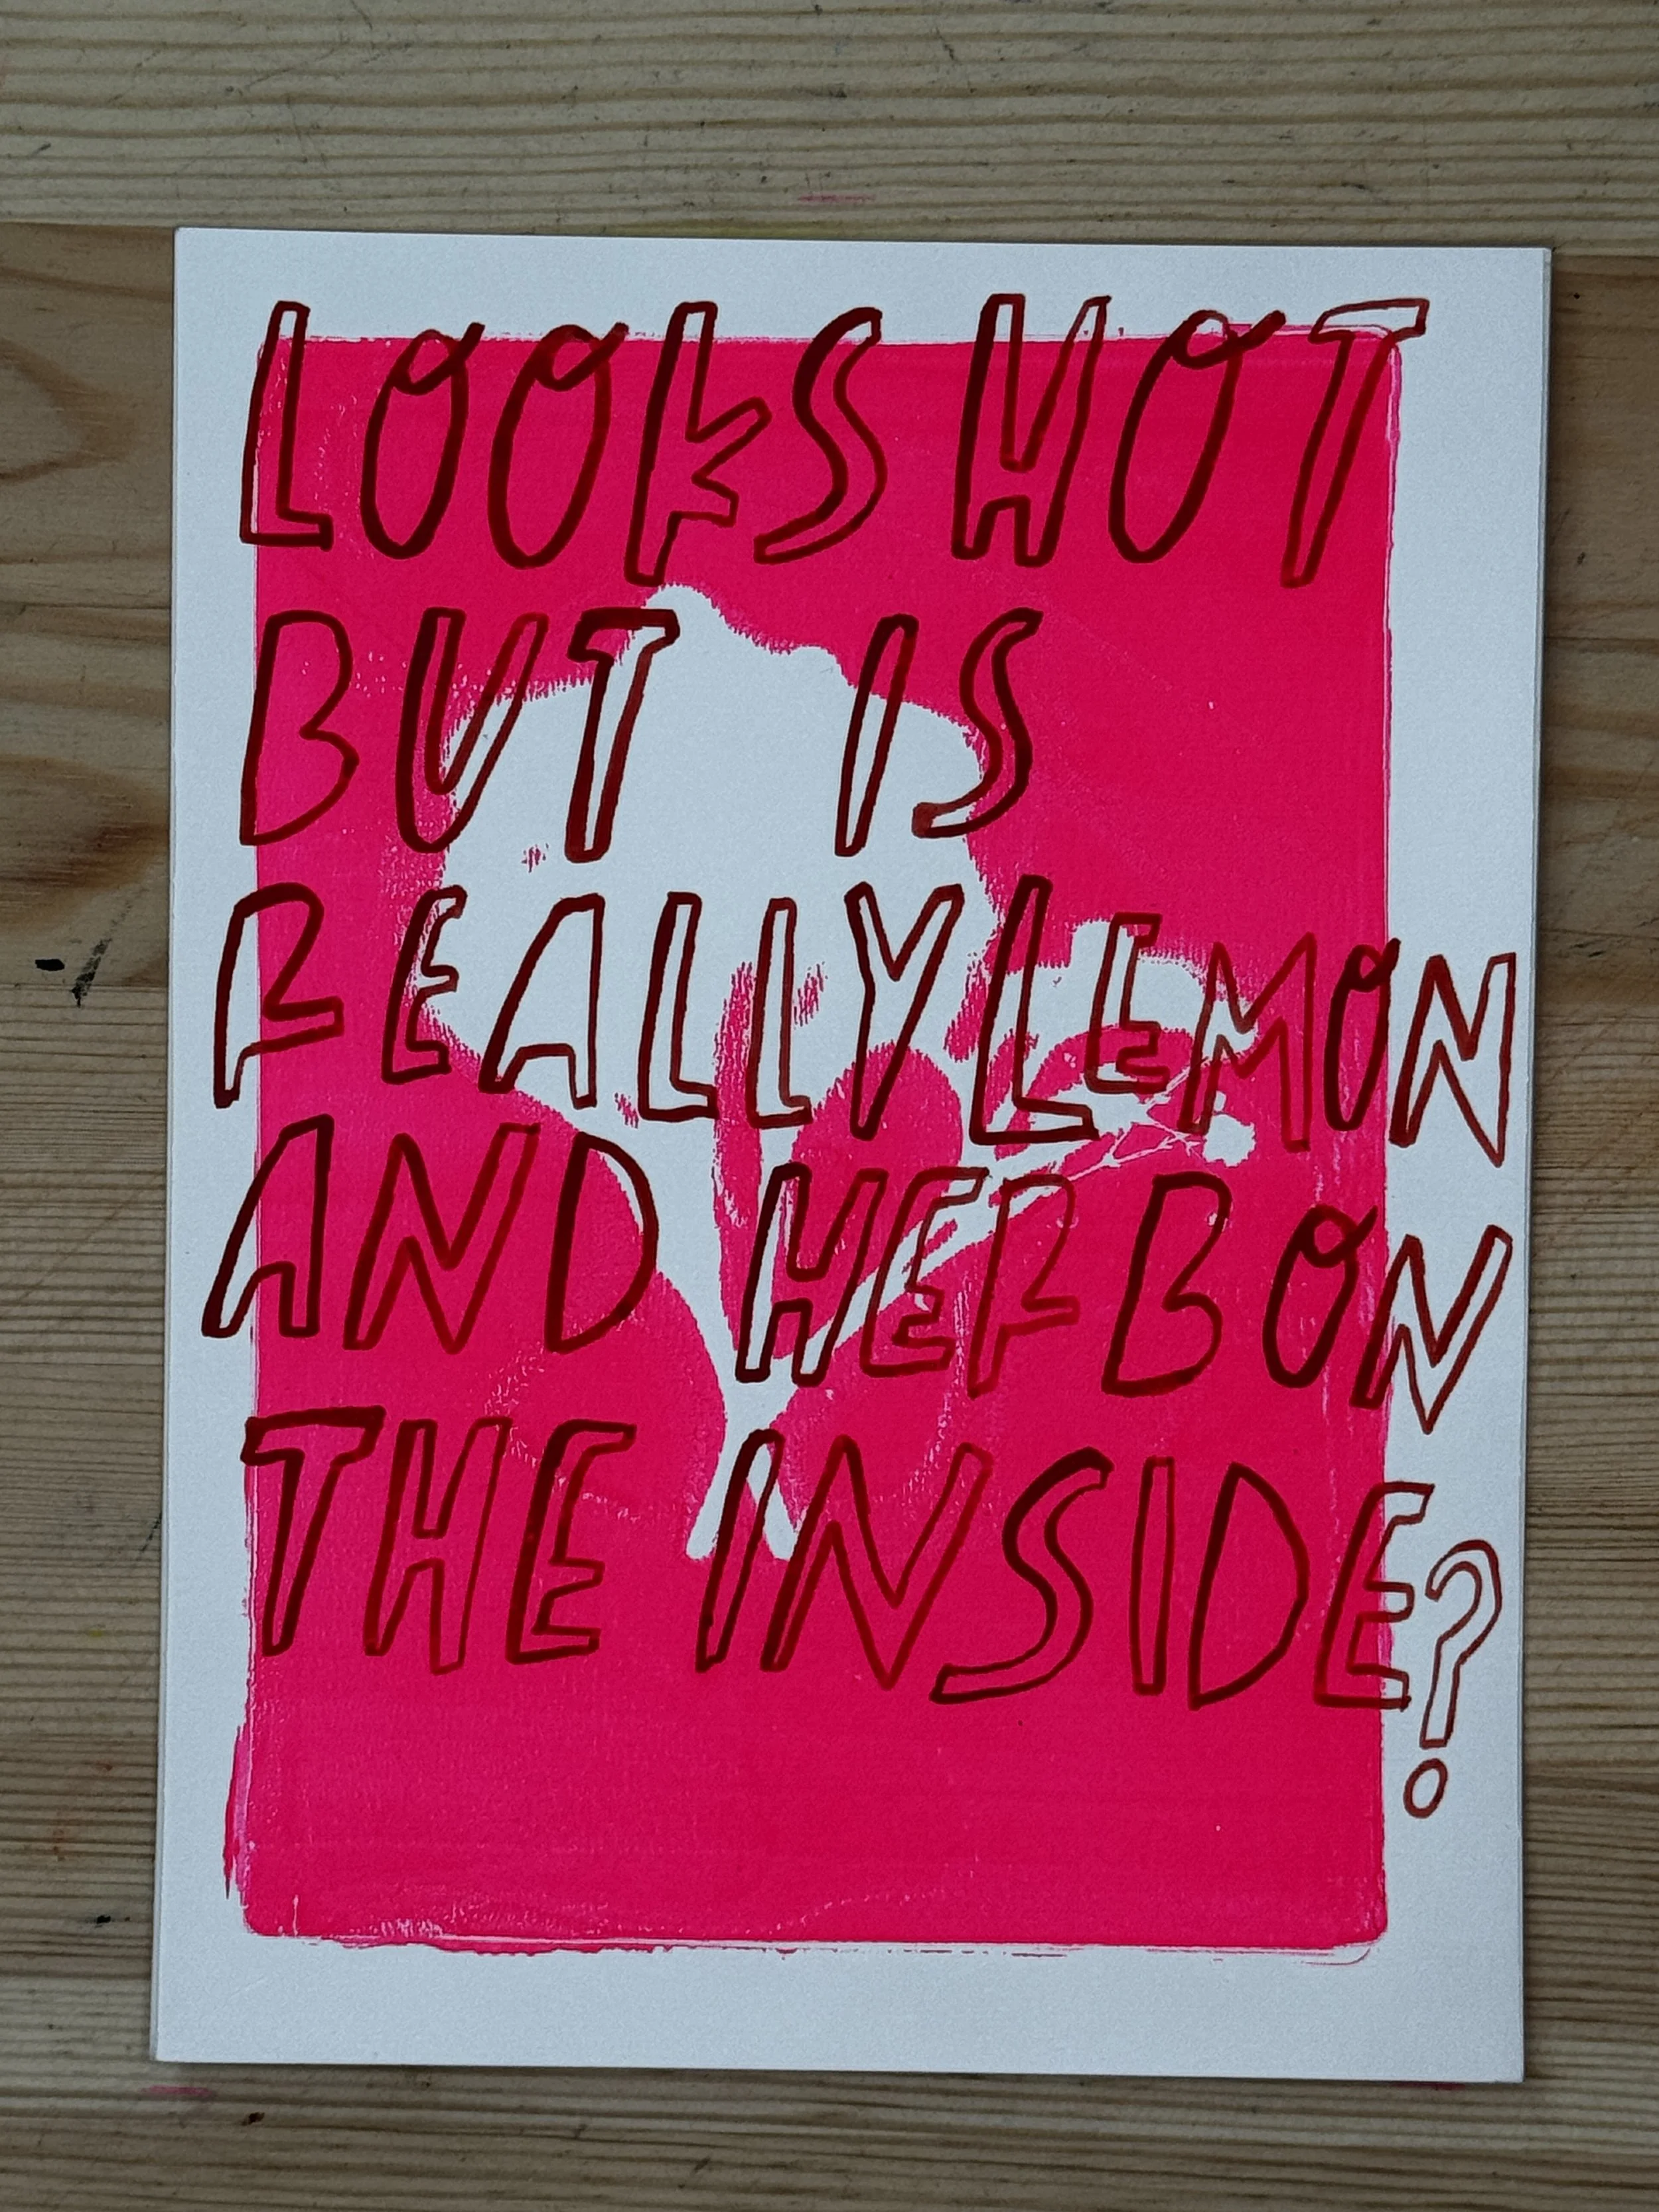 LOOKS HOT
BUT IS
REALLY LEMON
AND HERB ON
THE INSIDE?